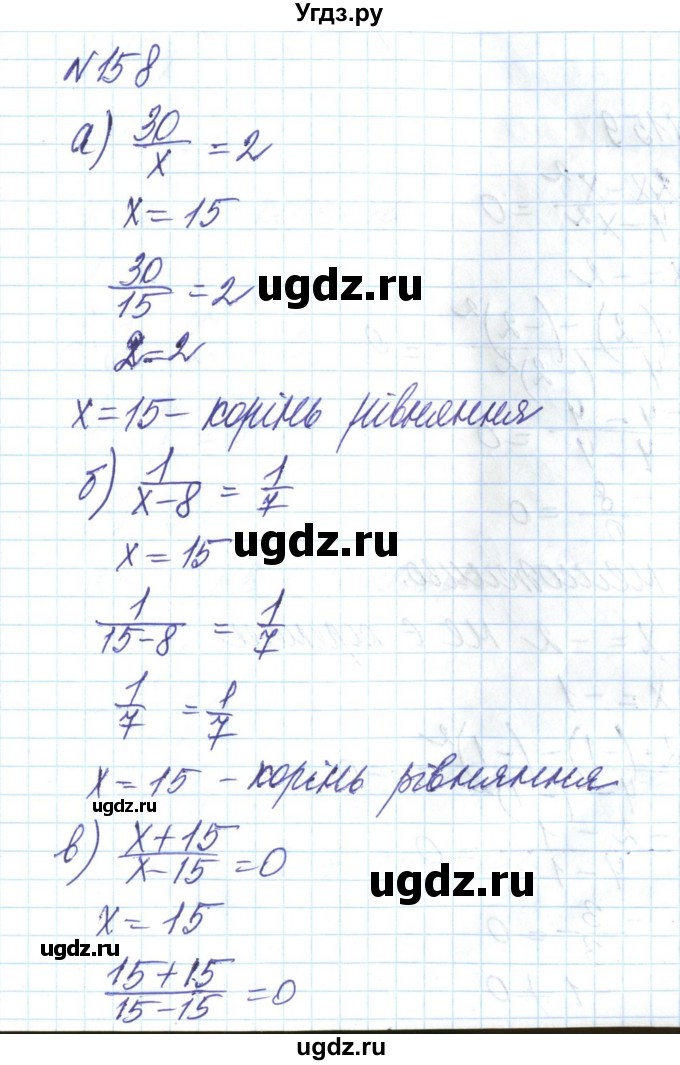 Угдз.ру
№158
а) 30/x = 2
x = 15
30/15 = 2
ugdz.ru
2 = 2
x = 15 - корінь рівняння
б) 1/(x-8) = 1/7
ugdz.ru
x = 15
1/(15-8) = 1/7
1/7 = 1/7
x = 15 - корінь рівняння
ugdz.ru
в) (x+15)/(x-15) = 0
ugdz.ru
x = 15
ugdz.ru
(15+15)/(15-15) = 0
ugdz.ru
ugdz.ru